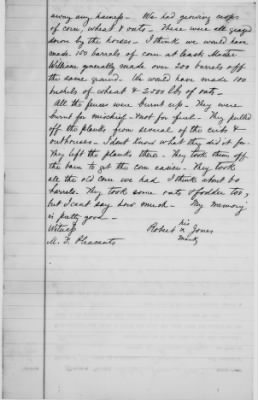 away any harness - We had growing crops
of corn, wheat & oats - These were all grazed
down by the horses - I think we would have
made 150 barrels of corn at least. Master
William generally made over 200 barrels off
the same ground. We would have made 100
bushels of wheat & 2500 lbs of oats -
All the fences were burnt up - They were
burnt for mischief - & not for fuel - They pulled
off the planks from several of the cribs &
outhouses - I dont know what they did it for -
They left the planks there - They took them off
the barn to get the corn easier - They took
all the old corn we had I think about 60
barrels. They took some oats & fodder too,
but I cant say how much - My memory
is pretty good -
Witness Robert his x mark Jones
M. F. Pleasants